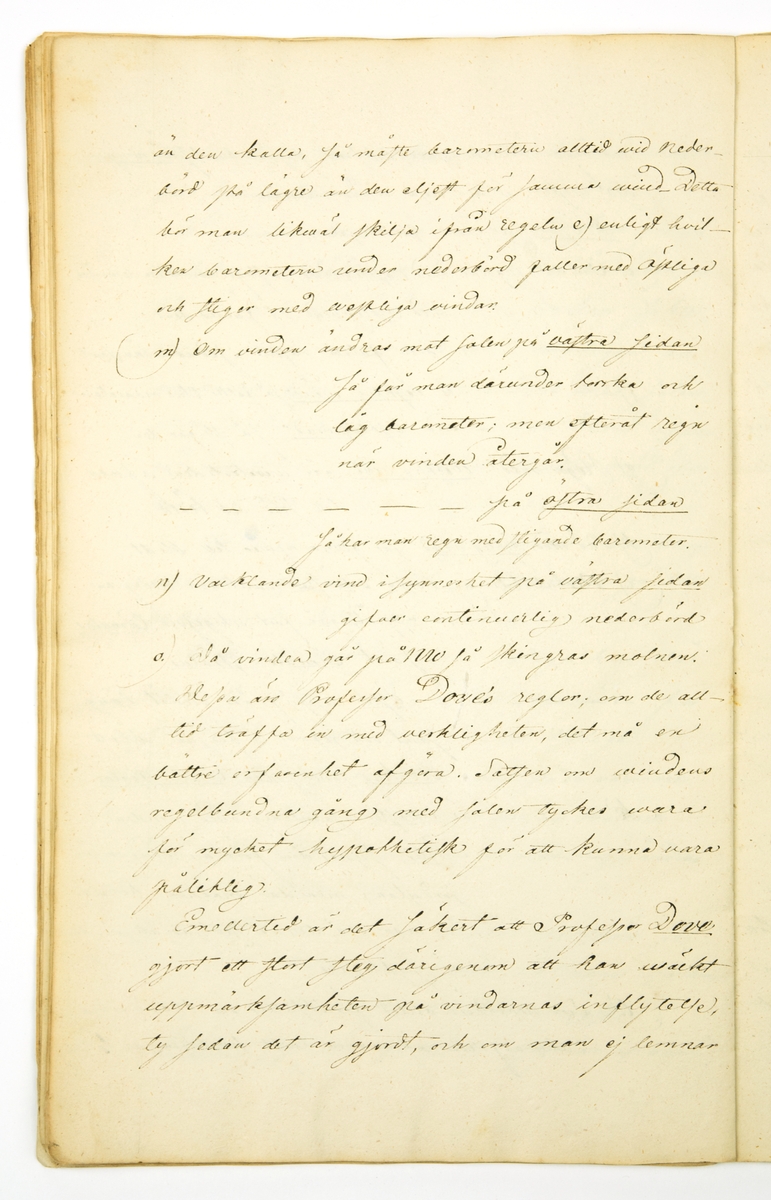 än den kalla, så måste barometern alltid wid Neder-
börd stå lägre än den eljest för samma wind. Detta
bör man likwäl skilja ifrån regeln e) enligt hvil-
ken barometern under nederbörd faller med Östliga
och stiger med westliga vindar.
m) Om vinden ändras mot solen på västra sidan
så får man därunder torrka och
låg barometer; men efteråt regn
när vinden återgår.
— — — — — — på östra sidan
så har man regn med stigande barometer.
n) Vacklande vind i synnerhet på västra sidan
gifver continuerlig nederbörd
o. Då vinden går på NW så skingras molnen.
Dessa äro Professor Dove's regler; om de all-
tid träffa in med verkligheten, det må en
bättre erfarenhet afgöra. Satsen om windens
regelbundna gång med solen tyckes wara
för mycket hypothetisk för att kunna vara
pålitlig.
Emedlertid är det säkert att Professor Dove
gjort ett stort steg därigenom att han wäckt
uppmärksamheten på vindarnas inflytelse,
ty sedan det är gjordt, och om man ej lemnar